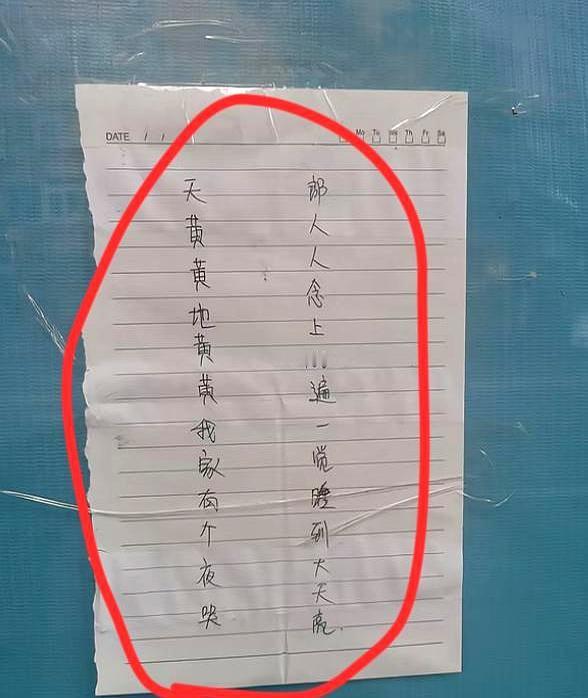 DATE / / Mo Tu We Th Fr Sa
天黄黄地黄黄我家有个夜哭
郎人人念上遍一觉睡到大天亮.